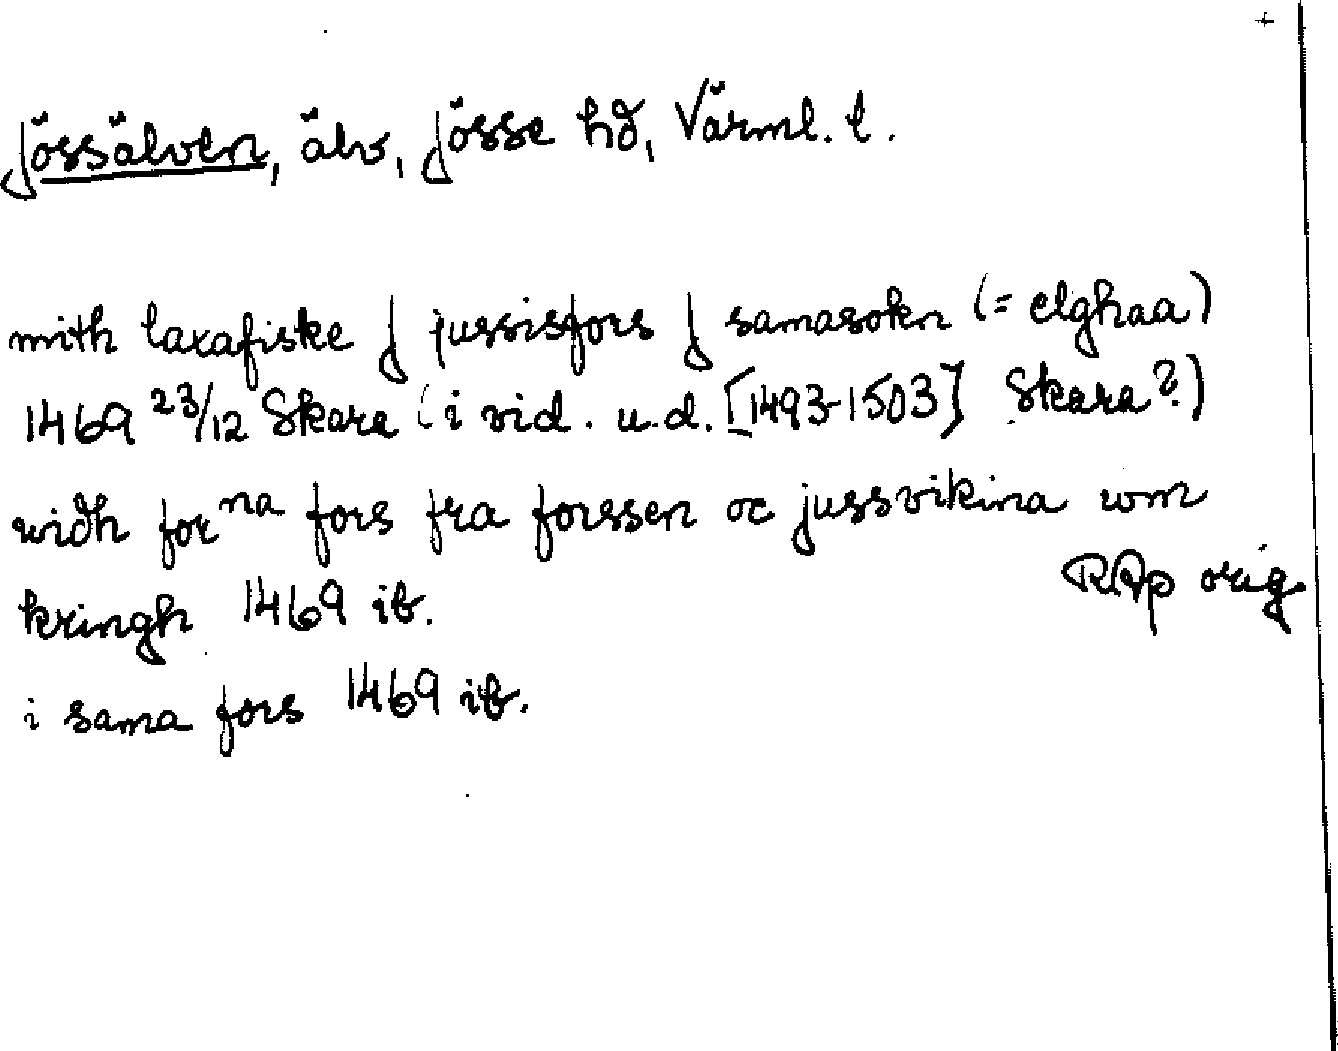 Jössälven, älv, Jösse hd, Värml. l.
mith laxafiske J jussisfors J samasokn (= elghaa)
1469 23/12 Skara (i vid. u.d. [1493-1503] Skara?)
widh forna fors fra forssen oc jussvikina wm
kringh 1469 ib.
RAp orig
i sama fors 1469 ib.